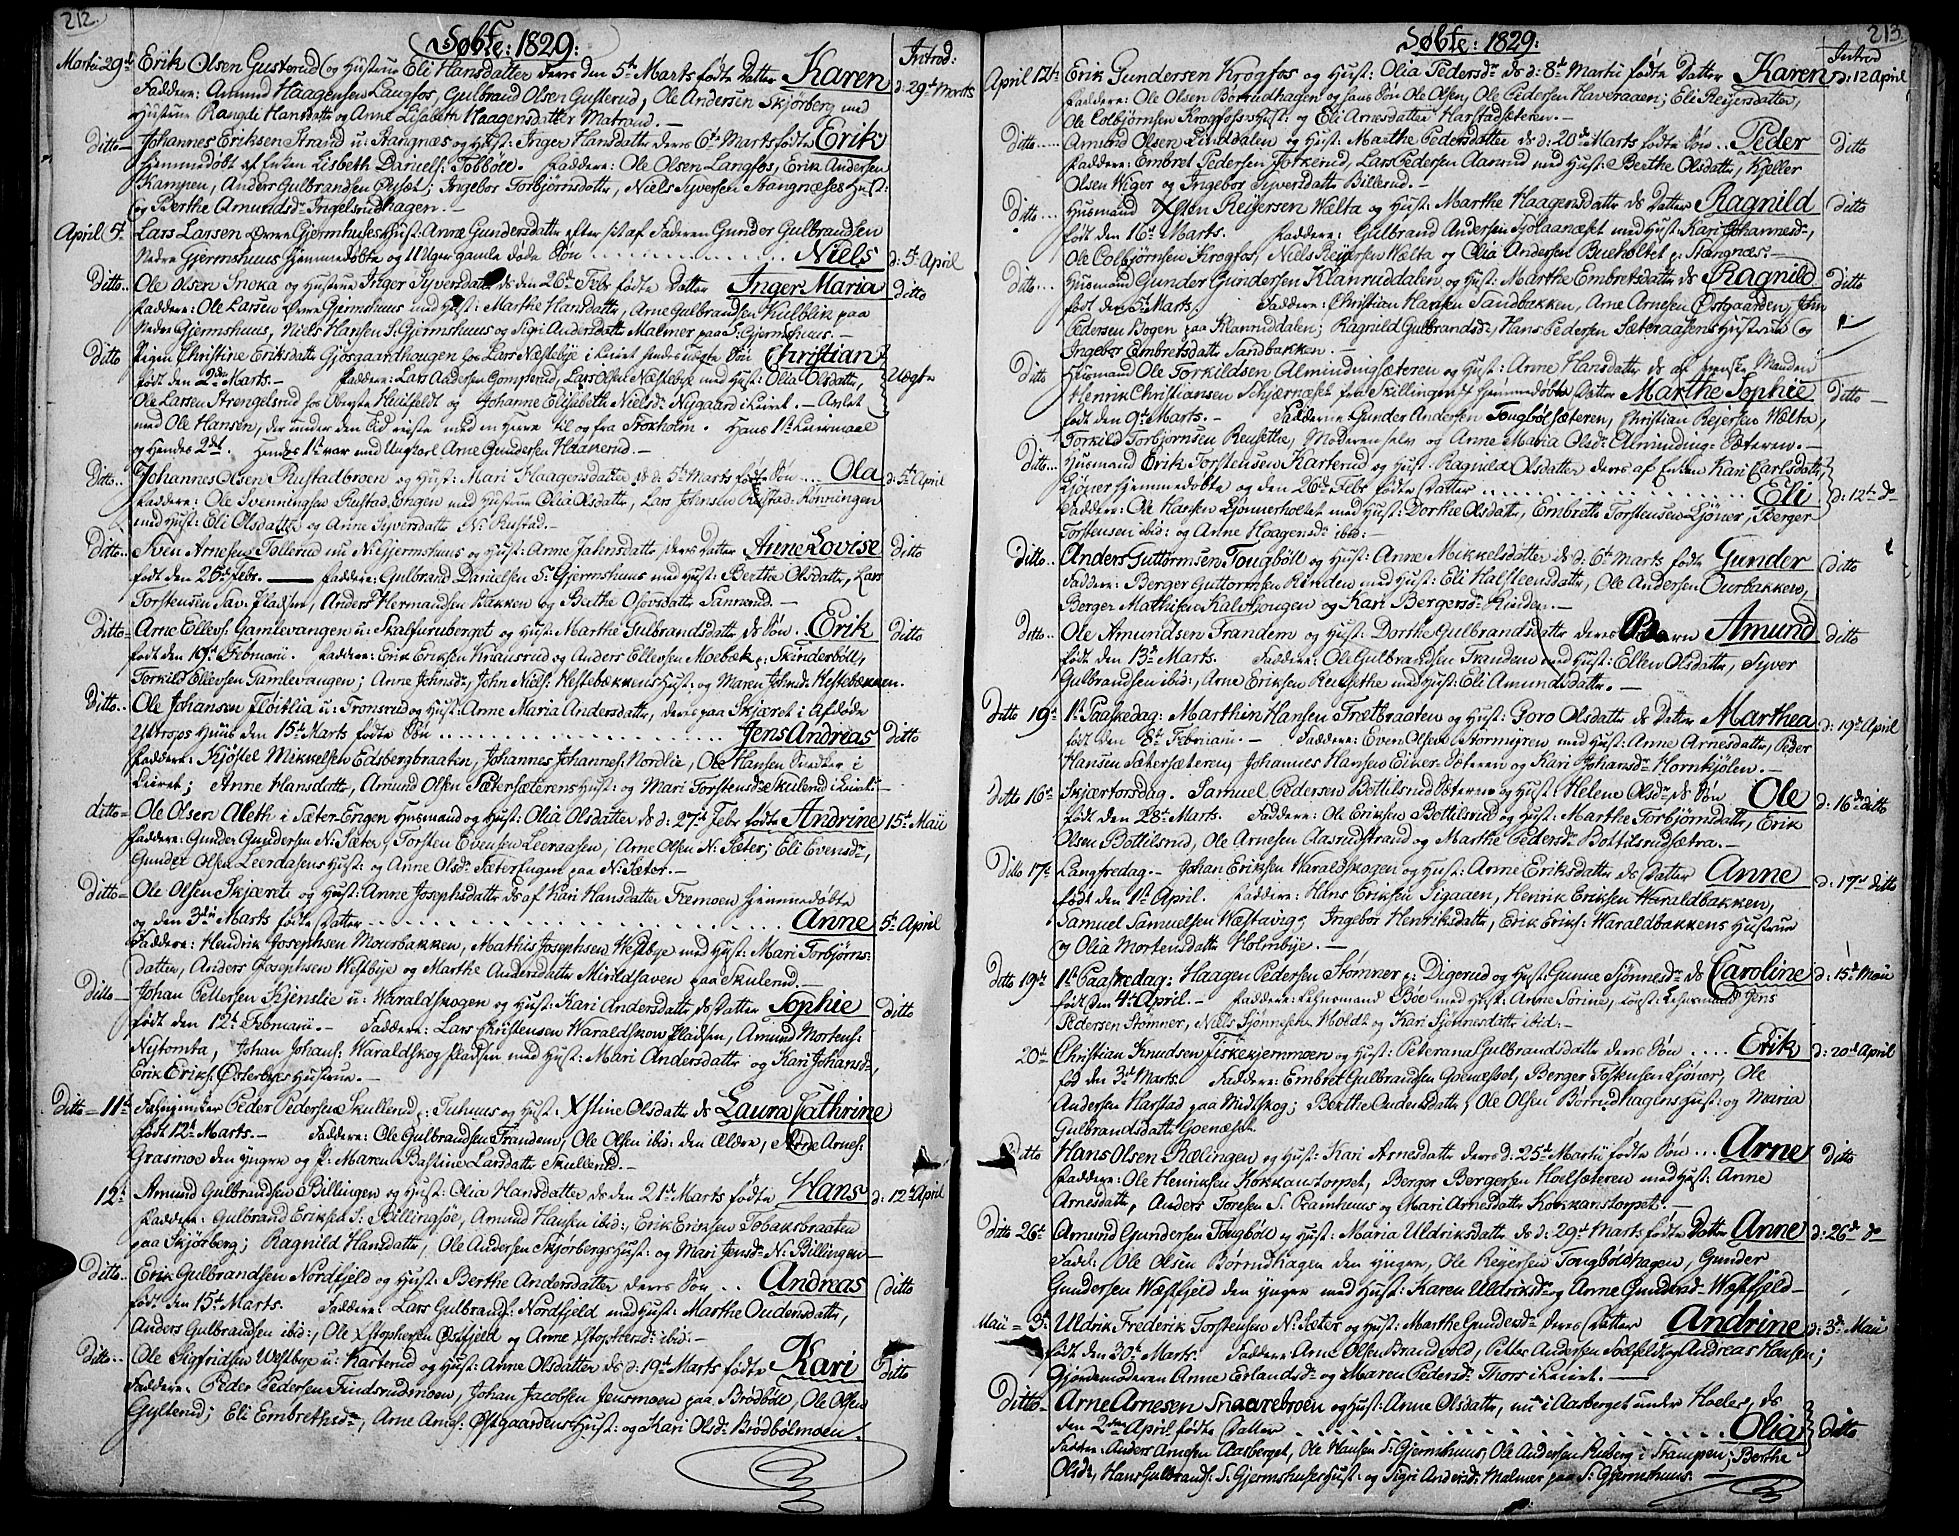 212.
Døbte: 1829:
Introd:
Martii 29de Erik Olsen Gusterud og Hustrue Eli Hansdatter deres den 5te Marts fødte Datter Karen d: 29de Marts
Faddere: Amund Haagensen Langfos, Gulbrand Olsen Gusterud, Ole Andersen Skjørberg med
Hustrue Rangdi Hansdatter og Anne Lisabeth Haagensdatter Matrand. —
Ditto — Johannes Eriksen Strand u: Stangnæs og Hust: Inger Hansdatter deres 6te Marts fødte Erik
Hjemmedøbt af Enken Lisbeth Daniels: Tobøle. Faddere: Ole Olsen Langfos, Erik Andersen
Kampen, Anders Gulbrandsen; Ingebor Torbjørnsdatter, Niels Syversen Stangnæses Hust:
og Berthe Amundsdr Ingelsrudhagen. —
April 5te Lars Larsen Øvre Gjermhuus Hust: Anne Gundersdatter efter sit af Faderen Gunder Gulbrandsen
Nedre Gjermshuus hjemmedøbte og 11 Uger gamle døde Søn Niels d: 5te April
Ditto Ole Olsen Snoka og Hustrue Inger Syversdatter ds den 26de Febr fødte Datter Inger Maria ditto
Faddere: Ole Larsen Øvre Gjermshuus med Hust: Marthe Hansdatter, Arne Gulbrandsen Kulblik paa
Nedre Gjermshuus, Niels Hansen S. Gjermshuus og Sigri Andersdatter Malmer paa S: Gjermshuus. —
Ditto Pigen Christine Eriksdatter Gjøsgaardhougen hos Lars Næstebye i Leiret hendes uægte Søn Christian
født den 2den Marts. — Faddere: Lars Andersen Gomsrud, Lars Olsen Næstebye med Hust: Olia Olsdatter, Uægte
Ole Larsen Strengelsrud hos Oberste Huitfeldt og Johanne Elisabeth Nielsdr Nygaard i Leiret. — Avlet
med Ole Hansen, der under den Tid reiste med en Herre til og fra Stokholm. Hans 1te Leiermaal
og Hendes 2det. Hendes 1te var med Ungkarl Arne Gundersen Haakerud. —
Ditto.. Johannes Olsen Rustadbroen og Hust: Mari Haagensdatter ds d: 5te Marts fødte Søn .... Ola d: 5te April
Faddere: Ole Svenningsen Rustad-Engen med Hustrue Olia Olsdatter, Lars Johnsen Rustad-Rønningen
med Hust: Eli Olsdatter og Anne Syversdatter N: Rustad. —
Ditto.. Sven Arnesen Tollerud nu N: Gjermshuus og Hust: Anne Jahnsdatter, deres Datter Anne Lovise ditto
født den 26de Febr. — Faddere: Gulbrand Danielsen S. Gjermshuus med Hust: Berthe Olsdatter, Lars
Torstensen Sav-Pladsen, Anders Hermandsen Bakken og Berthe Sannerud. —
Ditto = Arne Ellevs: Gamlevangen u: Skalfuruberget og Hust: Marthe Gulbrandsdatter ds Søn. Erik ditto
født den 19de Februarii. Faddere: Erik Eriksen Knausrud og Anders Ellevsen Moebæk p: Skinderbøll,
Torkild Ellevsen Gamlevangen; Anne Johnsdr, John Niels: Hestebækkens Hust: og Maren Johnsd: Hestebækken.
Ditto.. Ole Johansen Fløitlia u: Tronsrud og Hust: Anne Maria Andersdatter, deres paa Skjæret i Afdøde
Utropes Huus den 15de Marts fødte Søn Jens Andreas ditto
Faddere: Kjøstel Mikkelsen Edsbergbraaten, Johannes Johannes: Nordlie, Ole Hansen Snedker i
Leiret; Anne Hansdatter, Amund Olsen Sætersæterens Hust: og Mari Torstensdr Skulerud i Leiret. —
ditto = Ole Olsen Aleth i Sæter-Engen Husmand og Hust: Olia Olsdatter ds d: 27de Febr fødte Andrine 15de Maii
Faddere: Gunder Gundersen N: Sæter, Torsten Evensen Leeraasen, Arne Olsen N: Sæter; Eli Evensdr,
Gunder Olsen Leeraasens Hust: og Anne Olsdr Sæterengen paa N: Sæter. —
Ditto — Ole Olsen Skjæret og Hust: Anne Josephsdatter ds af Kari Hansdatter Tremoen hjemmedøbte
og den 3die Marts fødte Datter Anne 5te April
Faddere: Hendrik Josephsen Moursbakken, Mathis Josephsen Westbye med Hust: Mari Torbjørns-
datter, Anders Josephsen Westbye og Marthe Andersdatter Mirildhaven paa Skulerud. —
Ditto — Johan Pettersen Kjenslie u: Waraldskogen og Hust: Kari Andersdatter ds Datter Sophie ditto
født den 12te Februarii. — Faddere: Lars Christensen Waraldskow Pladsen, Amund Mortens:
Nestomta, Johan Johans: Waraldskog Pladsen med Hust: Mari Andersdatter og Kari Johansdr,
Erik Eriks: Østerbyes Hustrue. —
Ditto = 11te Peder Pedersen Skullerud p: Tuhuus og Hust: Xstine Olsdatter ds Laura Cathrine
født 12te Marts. — Faddere: Ole Gulbrandsen Frandem, Ole Olsen ibid: den Ældre, Arne Arnes:
Grasmoe den yngre og P: Maren Bastine Larsdatter Skullerud. —
12te Amund Gulbrandsen Billingen og Hust: Olia Hansdatter ds den 21de Marts fødte Hans d: 12te April
Faddere: Gulbrand Eriksen S: Billingsøe, Amund Hansen ibid:, Erik Eriksen Tobaksbraaten
paa Skjørberg; Ragnild Hansdatter, Ole Andersen Skjørbergs Hust: og Mari Jensdr N: Billingen —
Ditto.. Erik Gulbrandsen Nordfjeld og Hust: Berthe Andersdatter deres Søn .. Andreas ditto
født den 15de Marts. Faddere: Lars Gulbrands: Nordfjeld med Hust: Marthe Oudensdatter,
Anders Gulbrandsen ibid:, Ole Xstophersen Østfjeld og Anne Xstophersdr ibid: —
Ditto.. Ole Sigfridsen Westbye u: Karterud og Hust: Anne Olsdatter ds d: 19de Marts fødte Kari ditto
Faddere: Peder Pedersen Findsrudmoen, Johan Jacobsen Jensmoen paa Brødbøl, Ole Olsen
Gylterud; Eli Embrethsdr, Arne Arnes: Østgaardens Hust: og Kari Olsdr Brødbølmoen.
213.
Døbte: 1829:
Introd
April 12te Erik Gundersen Krogfos og Hust: Olia Pedersdr ds d: 8de Martii fødte Datter Karen d: 12 April
Faddere: Ole Olsen Børrudhagen og hans Søn Ole Olsen, Ole Pedersen Haveraaen; Eli Reiersdatter,
Ole Colbjørnsen Krogfosses Hust: og Eli Arnesdatter Harstadsæteren. —
Ditto..... Amund Olsen Linddalen og Hust: Marthe Pedersdatter ds d: 20de Marts fødte Søn .. Peder Ditto
Faddere: Embret Pedersen Torkerud, Lars Pedersen Aamud med Hust: Berthe Olsdatter, Kjeller
Olsen Wiger og Ingebor Syversdatter Billerud. —
Ditto... Husmand Xsten Reiersen Wælta og Hust: Marthe Haagensdatter ds Datter Ragnild ditto
født den 16de Marts. Faddere: Gulbrand Andersen Sjolaanæset med Hust: Kari Johannesdr,
Ole Colbjørnsen Krogfos, Niels Reiersen Wælta og Olia Andersen Bueholtet p: Stangnæs. —
Ditto... Husmand Gunder Gundersen Klanruddalen og Hust: Marthe Embretsdatter ds Ragnild ditto
født den 5te Marts. Faddere: Christian Hansen Sandbakken, Arne Arnesen Østgaarden, John
Pedersen Bogen paa Klanruddalen; Ragnild Gulbrandsdr, Hans Pedersen Sæteraasens Hustrue og
Ingebor Embretsdatter Sandbakken. —
Ditto Husmand Ole Torkildsen Almindingsæteren og Hust: Anne Hansdatter ds af svenske Manden
Henrik Christiansen Skjernæset fra Skillingmark hjemmedøbte Datter Marthe Sophie ditto —
født den 9de Marts. — Faddere: Gunder Andersen Tougbølsæteren, Christian Reiersen Wælta,
Torkild Torbjørnsen Reusethe, Moderen selv og Anne Maria Olsdr Alminding-Sæteren. —
Ditto... Husmand Erik Torstensen Karterud og Hust: Ragnild Olsdatter deres af Enken Kari Carlsdatter
Ljøner hjemmedøbte og den 26de Febr fødte Datter Eli d: 12te do
Faddere: Ole Hansen Ljønnerholtet med Hust: Dorthe Olsdatter, Embreth Torstensen Ljøner, Berger
Torstensen ibid: og Anne Haagensdr ibid: —
Ditto.. Anders Guttormsen Tougbøll og Hust: Anne Mikkelsdatter ds d: 6te Marts fødte Gunder ditto
Faddere: Berger Guttormsen Rinden med Hust: Eli Halsteensdatter, Ole Andersen Ourbakken,
Berger Mathisen Kalvhougen og Kari Bergersdr Rinden. —
ditto.. Ole Amundsen Frandem og Hust: Dorthe Gulbrandsdatter deres Barn Amund ditto
født den 13de Marts. Faddere: Ole Gulbrandsen Frandem med Hust: Ellen Olsdatter, Syver
Gulbrandsen ibid:, Arne Eriksen Reusethe med Hust: Eli Amundsdatter. —
Ditto 19de 1te Paaskedag: Marthin Hansen Trætbraaten og Hust: Goro Olsdatter ds Datter Marthea d: 19de April
født den 8de Februarii. — Faddere: Even Olsen Stormyren med Hust: Anne Arnesdatter, Peder
Hansen Sætersæteren, Johannes Hansen Eiker-Sæteren og Kari Johansdr Hornkjølen. —
Ditto 16de Skjærtorsdag. Samuel Pedersen Bottilsrud Sæteren og Hust: Helene Olsdr ds Søn Ole d: 16de ditto
født den 28de Marts. Faddere: Ole Eriksen Bottilsrud og Hust: Marthe Torbjørnsdatter, Erik
Olsen Bottilsrud, Ole Arnesen Aasrudstrand og Marthe Pedersdr Bottilsrudsætra. —
Ditto 17de Langfredag. — Johan Eriksen Waraldskogen og Hust: Anne Eriksdatter ds Datter Anne d: 17de ditto
født den 1te April. Faddere: Hans Eriksen Sigaaen, Henrik Eriksen Waraldbakken,
Samuel Samuelsen Wæltavig; Ingebor Henriksdatter, Erik Eriks: Waraldbakkens Hustrue
og Olia Mortensdatter Holmbye. —
Ditto 19de 1te Paaskedag: Haagen Pedersen Stømner p: Digerud og Hust: Gunne Sjønnesdr ds Caroline d: 15de Maii
født den 4de April. — Faddere: Lehnsmand Bøe med Hust: Anne Sørine, forst: Lehnsmand Jens
Pedersen Stømner, Niels Sjønnesen Holdt og Kari Sjønnesdatter ibid: —
20de Christian Knudsen Fiskekjernmoen og Hust: Peterana Gulbrandsdatter deres Søn .... Erik d: 20de April
fød den 3de Marts. Faddere: Embret Gulbrandsen Goenæsset, Berger Torstensen Ljøner, Ole
Andersen Harstad paa Midtskog; Berthe Andersdatter, Ole Olsen Børrudhagens Hust: og Maria
Gulbrandsdatter Goenæset.
Ditto Hans Olsen Rælingen og Hust: Kari Arnesdatter deres d: 25de Martii fødte Søn ... Arne ditto
Faddere: Ole Henriksen Kokkanstorpet, Berger Bergersen Hoelsæteren med Hust: Anne
Arnesdatter, Anders Toresen S: Pramhuus og Mari Arnesdatter Kokkanstorpet. —
Ditto 26de Amund Gundersen Tougbøle og Hust: Maria Uldriksdatter ds d: 29de Marts fødte Datter Anne d: 26de do
Fadd: Ole Olsen Børrudhagen den yngre, Ole Reyersen Tougbølshagen, Gunder
Gundersen Wæstfjeld den yngre med Hust: Karen Uldriksdr og Anne Gundersdr Wæstfjeld —
Maii = 3de Uldrik Frederik Torstensen N: Sæter og Hust: Marthe Gundersdr deres Datter Andrine d: 3de Maii
født den 30te Marts. Faddere: Arne Olsen Brandvold, Petter Andersen og Andreas Hansen;
Gjordemoderen Anne Erlandsdr og Maren Pedersdr Thors i Leiret. —
Ditto — Arne Arnesen Snaarebroen og Hust: Anne Olsdatter, nu i Aasberget under Hoeler, ds
den 2den April fødte Datter Olia ditto
Faddere: Anders Arnesen Aasberget, Ole Hansen S: Gjermshuus, Ole Andersen Ruberg i Trampen; Berthe
Olsdr, Hans Gulbrands: S: Gjermshuses Hust: og Sigri Andersdr Malmer paa S: Gjermshuus. —